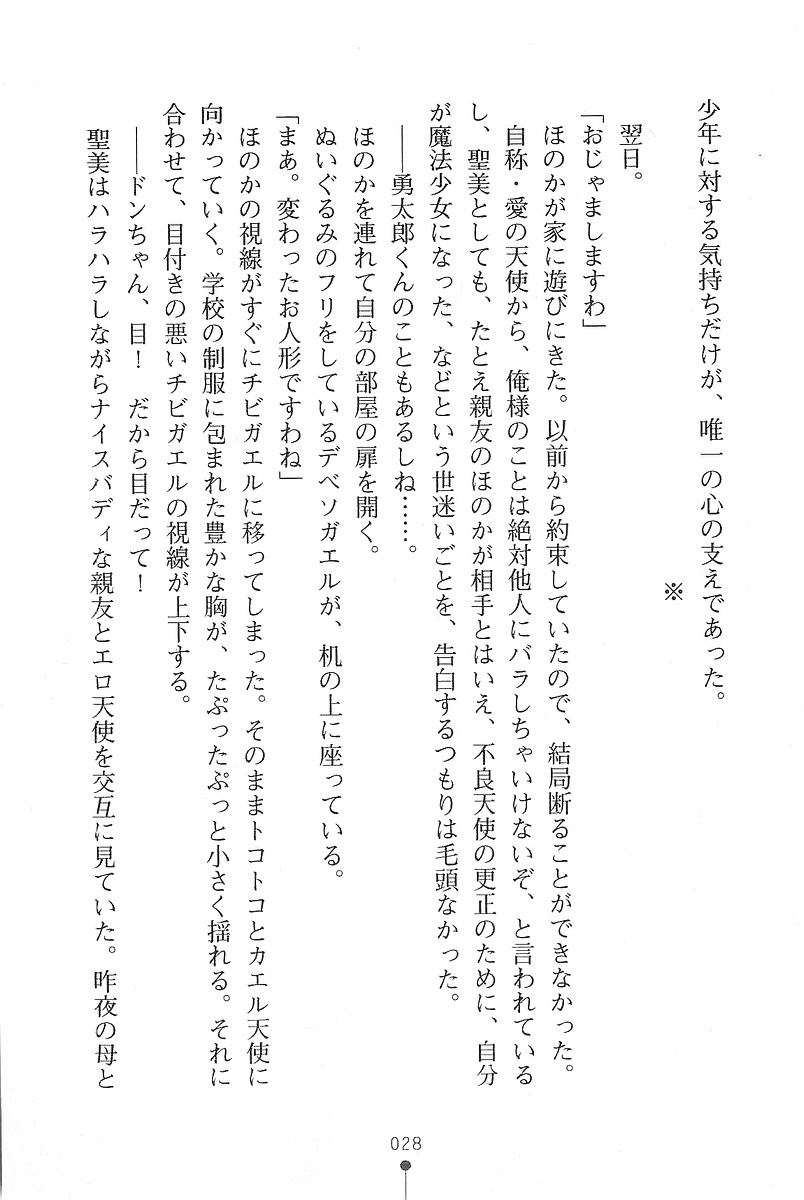 少年に対する気持ちだけが、唯一の心の支えであった。
※
翌日。
「おじゃましますわ」
ほのかが家に遊びにきた。以前から約束していたので、結局断ることができなかった。
自称・愛の天使から、俺様のことは絶対他人にバラしちゃいけないぞ、と言われている
し、聖美としても、たとえ親友のほのかが相手とはいえ、不良天使の更正のために、自分
が魔法少女になった、などという世迷いごとを、告白するつもりは毛頭なかった。
――勇太郎くんのこともあるしね……。
ほのかを連れて自分の部屋の扉を開く。
ぬいぐるみのフリをしているデベソガエルが、机の上に座っている。
「まあ。変わったお人形ですわね」
ほのかの視線がすぐにチビガエルに移ってしまった。そのままトコトコとカエル天使に
向かっていく。学校の制服に包まれた豊かな胸が、たぷったぷっと小さく揺れる。それに
合わせて、目付きの悪いチビガエルの視線が上下する。
――ドンちゃん、目！　だから目だって！
聖美はハラハラしながらナイスバディな親友とエロ天使を交互に見ていた。昨夜の母と
028